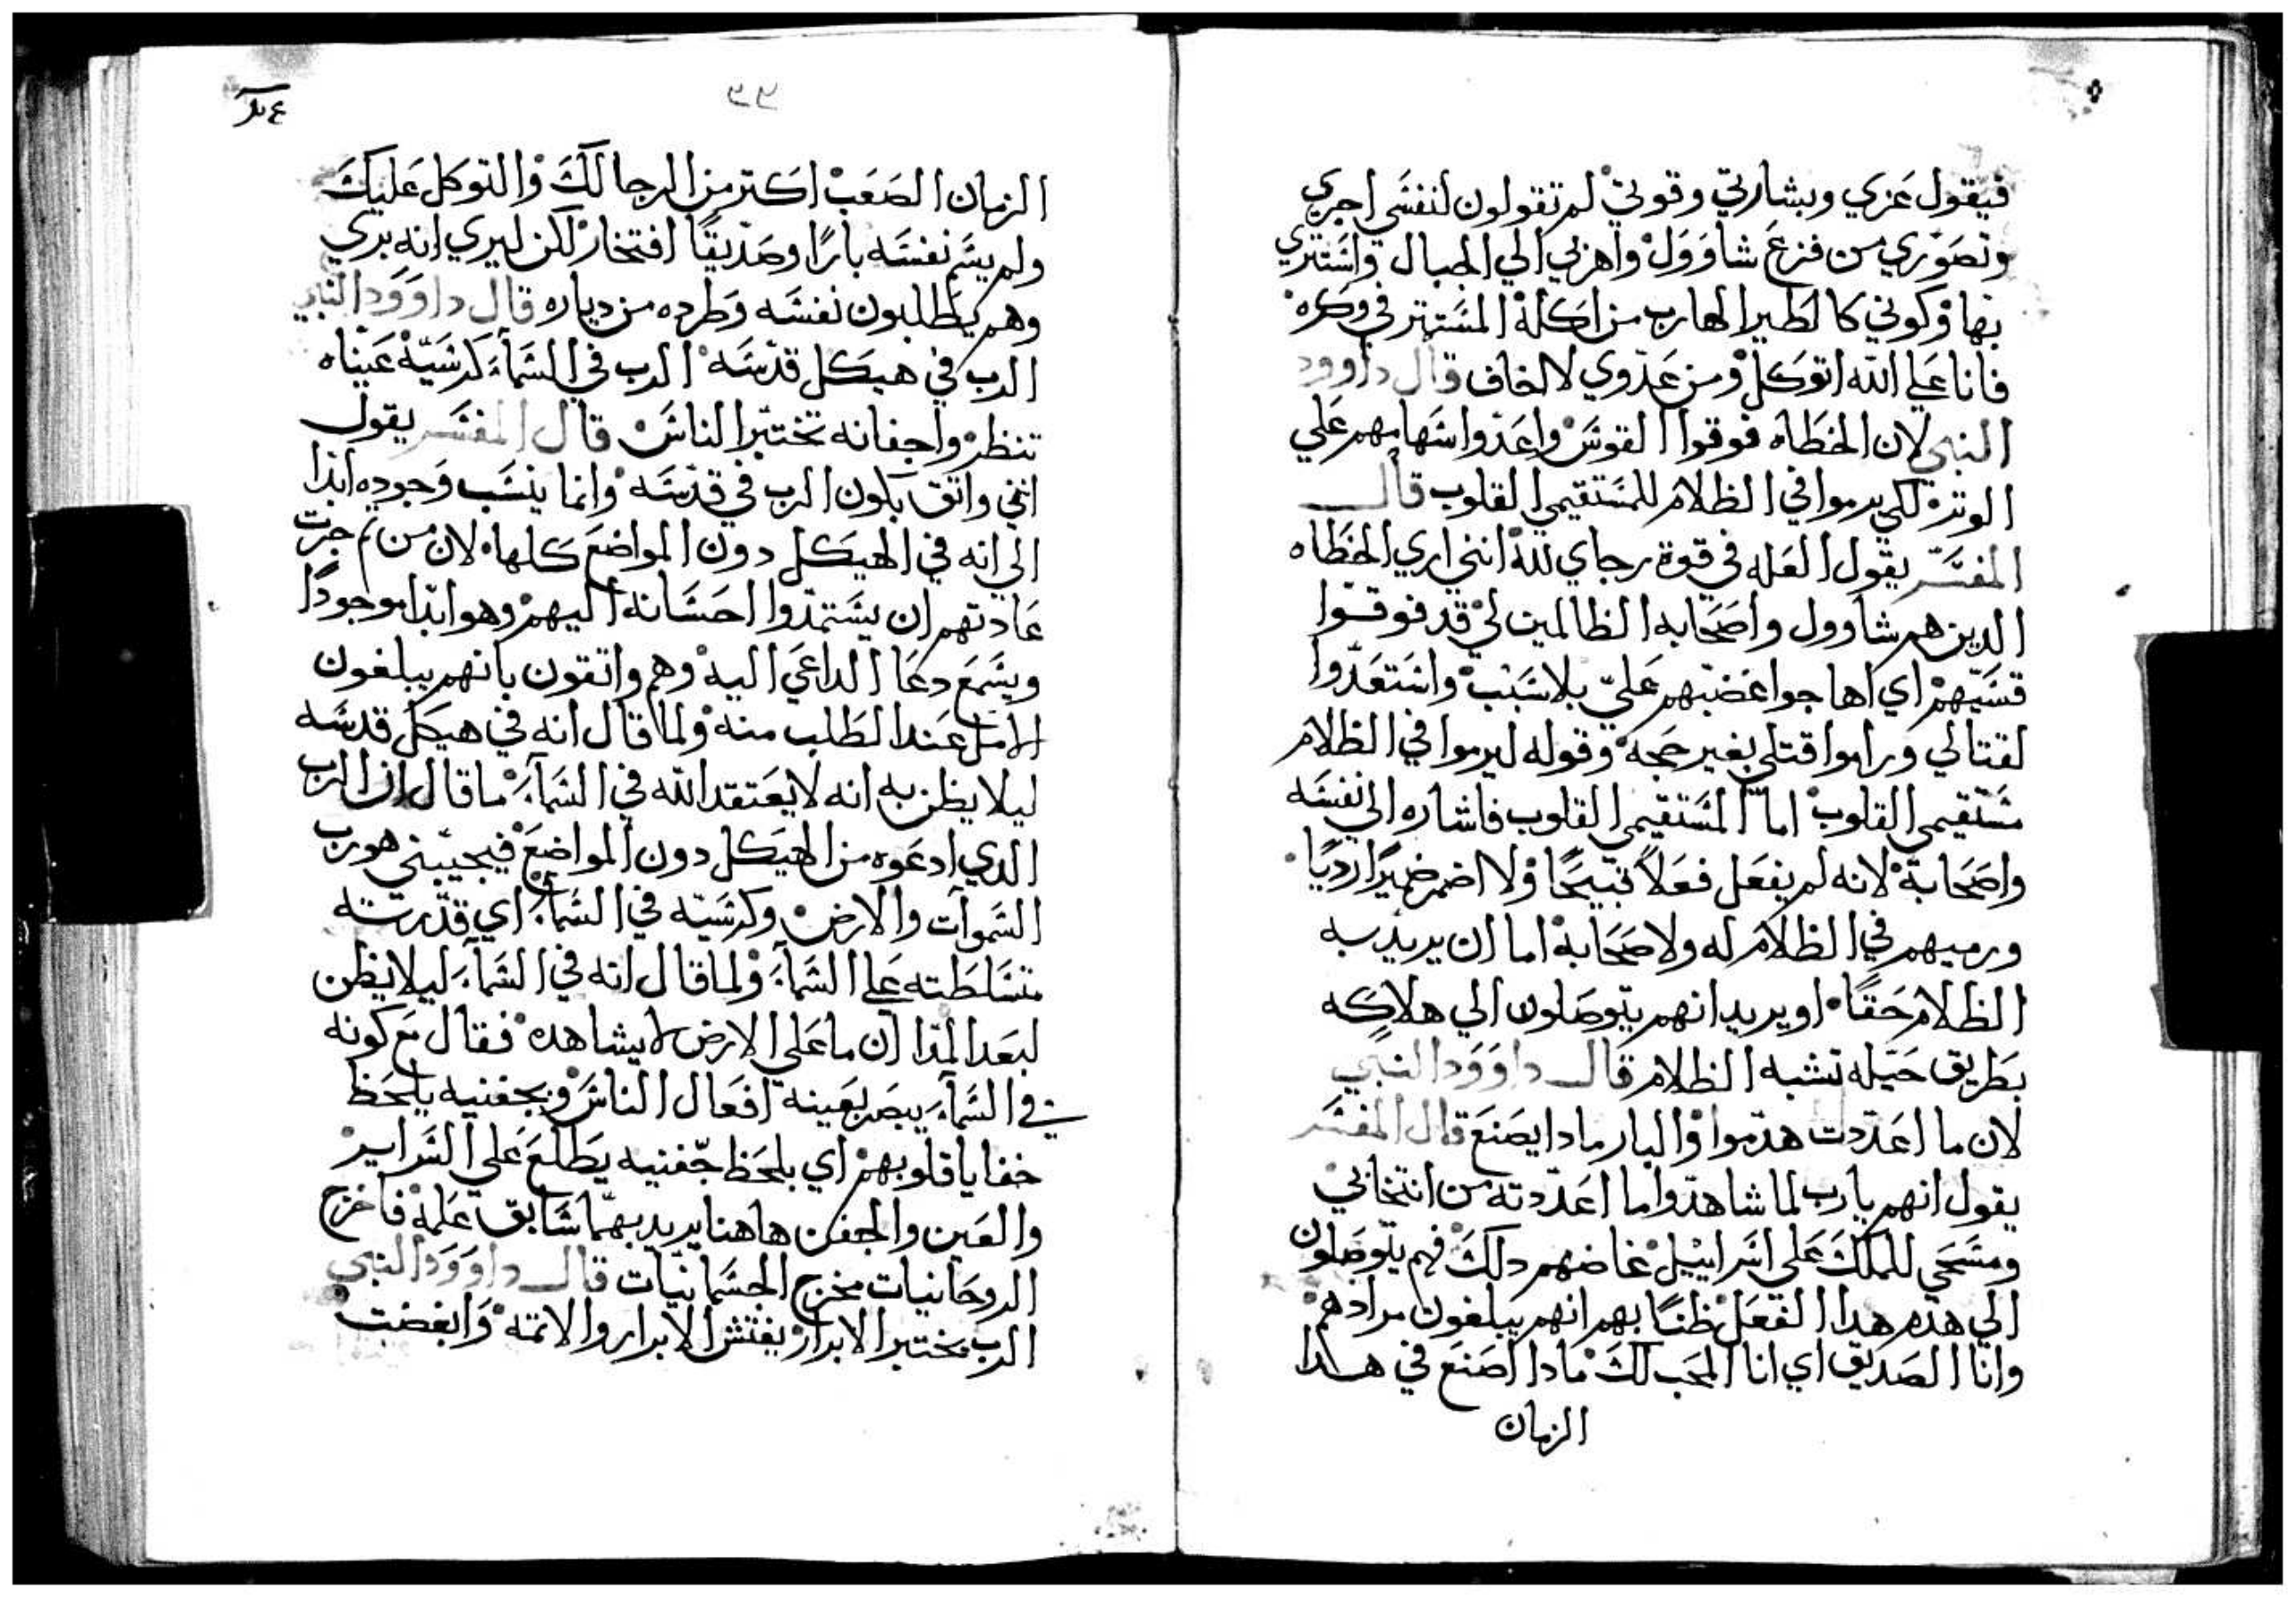 فيقول عزي وبشارتي وقوتي لم تقولون لنفسي اجري
وتصوري من فزع شاوول واهربي الي الجبال واستتري
بها وكوني كالطير الهارب من اكلة المستهتر في وكره
فانا علي الله اتوكل ومن عدوي لا اخاف قال داوود
النبي لان الخطاه فوقوا القوس واعدوا سهامهم علي
الوتر لكي يرموا في الظلام للمستقيمي القلوب قال
المفسر يقول العله في قوة رجاي لله انني اري الخطاه
الدين هم شاوول واصحابه الظالمين لي قد فوقوا
قسيهم اي اهاجوا غضبهم علي بلا سبب واستعدوا
لقتالي وراموا قتلي بغير حجه وقوله ليرموا في الظلام
مستقيمي القلوب اما المستقيمي القلوب فاشاره الي نفسه
واصحابه لانه لم يفعل فعلاً قبيحًا ولا اضمر ضميرًا رديًا
ورميهم في الظلام له ولاصحابه اما ان يريد به
الظلام حقًا او يريد انهم يتوصلون الي هلاكه
بطريق حيله تشبه الظلام قال داوود النبي
لان ما اعددت هدموا والبار مادا يصنع قال المفسر
يقول انهم يارب لما شاهدوا ما اعددته من انتخابي
ومسحي للملك علي اسراييل غاضهم دلك فهم يتوصلون
الي هدم هدا الفعل ظنًا بهم انهم يبلغون مرادهم
وانا الصديق اي انا المحب لك مادا اصنع في هدا
الزمان
٩٩
الزمان الصعب اكتر من الرجا لك والتوكل عليك
ولم يسم نفسه بارًا وصديقًا افتخار لكن ليري انه بري
وهم يطلبون نفسه وطرده من دياره قال داوود النبي
الرب في هيكل قدسه الرب في السمآء كرسيه عيناه
تنظر واجفانه تختبر الناس قال المفسر يقول
انني واتق بكون الرب في قدسه وانما ينسب وجوده ابدا
الي انه في الهيكل دون المواضع كلها لان من تم جرت
عادتهم ان يستمدوا احسانه اليهم وهو ابدا موجودًا
ويسمع دعا الداعي اليه وهم واتقون بانهم يبلغون
الامل عند الطلب منه ولما قال انه في هيكل قدسه
ليلا يظن به انه لا يعتقد الله في السمآء ما قال ان الرب
الدي ادعوه من الهيكل دون المواضع فيجيبني هو رب
السموات والارض وكرسيه في السمآء اي قدرته
متسلطته علي السمآء ولما قال انه في السمآء ليلا يظن
لبعد المدا ان ما علي الارض لا يشاهده فقال مع كونه
في السمآء يبصر بعينه افعال الناس وبجفنيه يلحظ
خفايا قلوبهم اي بلحظ جفنيه يطلع علي السراير
والعين والجفن هاهنا يريد بهما سابق علمه فاخرج
الروحانيات مخرج الجسمانيات قال داوود النبي
الرب مختبر الابرار يفتش الابرار والاتمه وابغضت